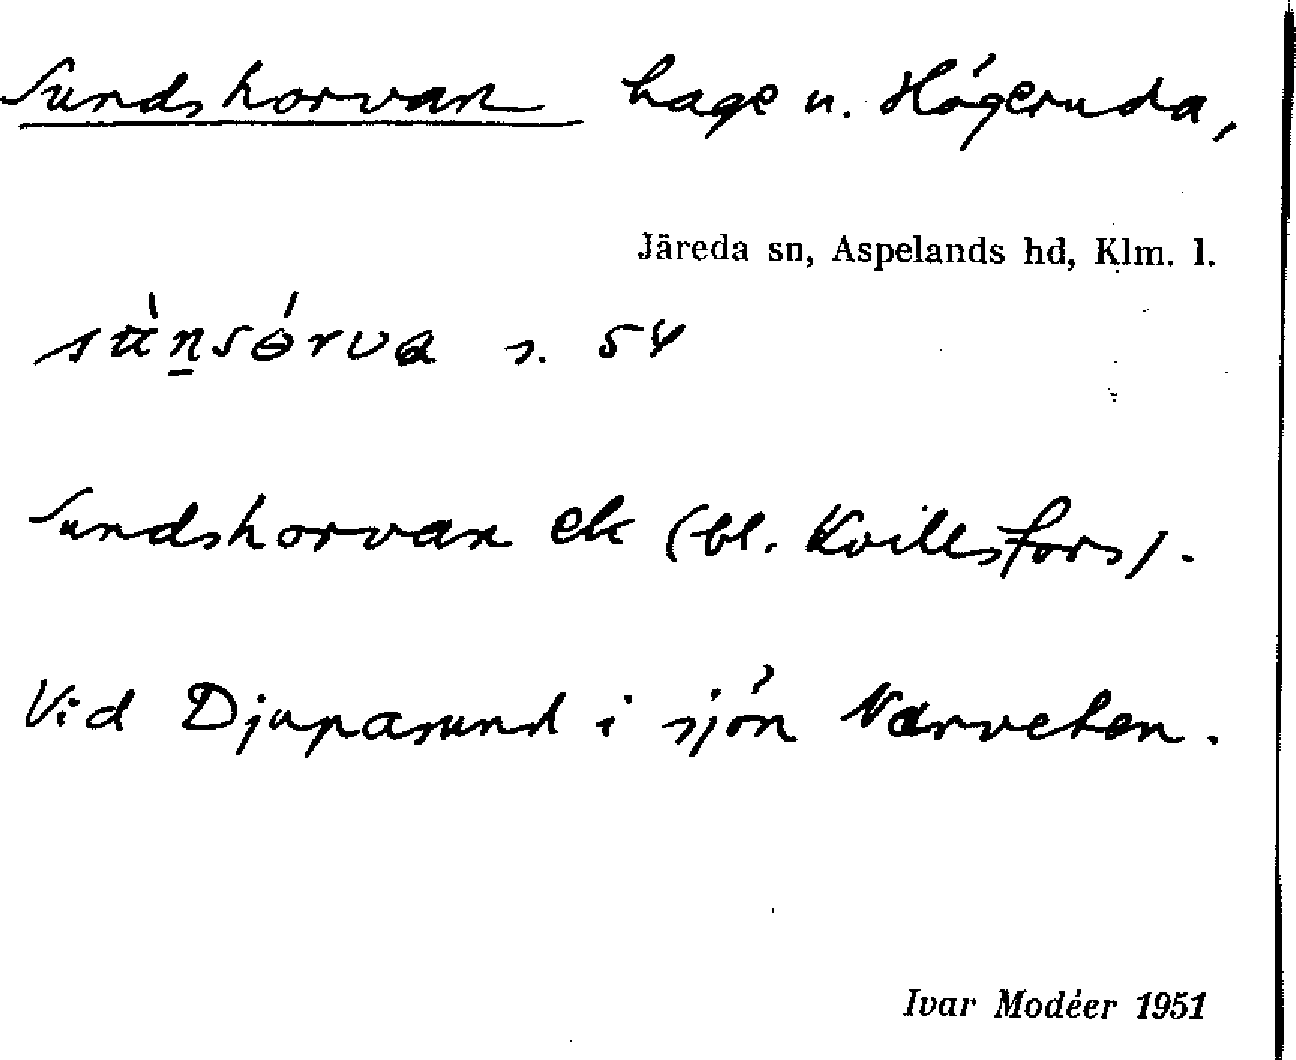 Sundshorvan hage u. Högeruda,
Järeda sn, Aspelands hd, Klm. l.
s. 54
Sundshorvan ek (bl. Kvillsfors).
Vid Djupasund i sjön Narveten.
Ivar Modéer 1951